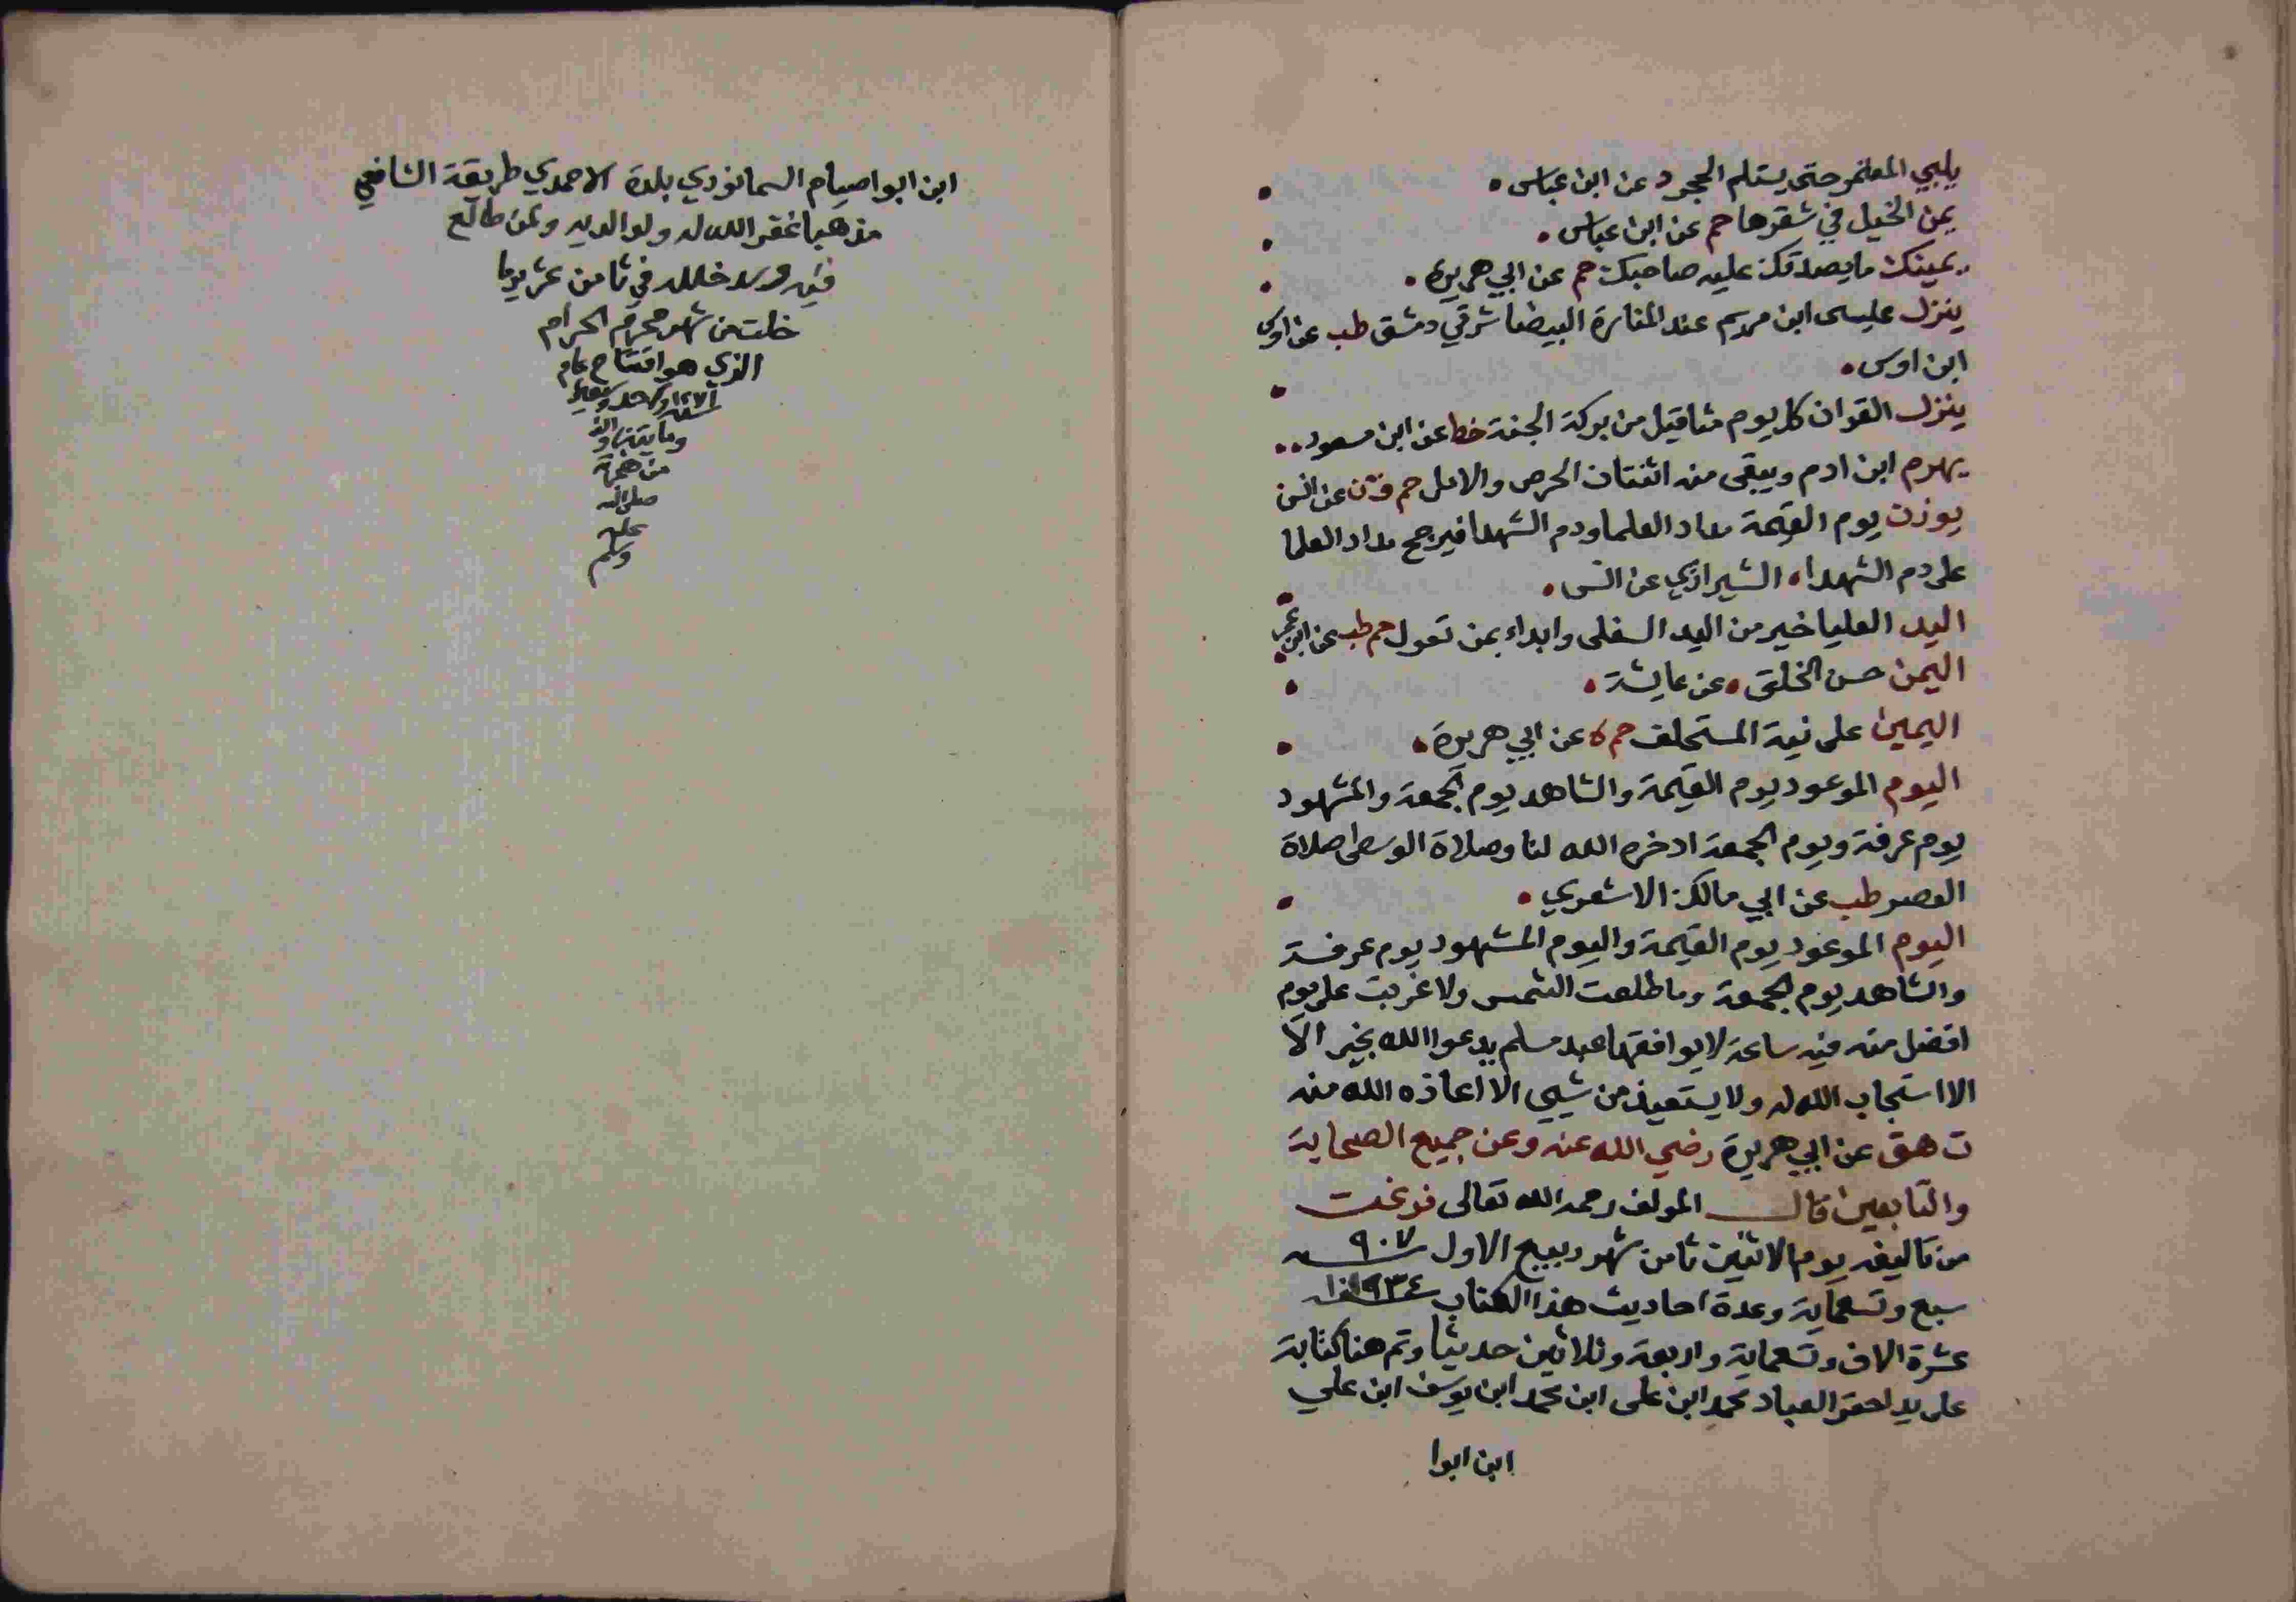 يلبي المعتمر حتى يستلم الحجر د عن ابن عباس •
يمن الخيل في شقرها حم عن ابن عباس •
يمينك ما يصدقك عليه صاحبك حم عن ابي هريرة •
ينزل عيسى ابن مريم عند المنارة البيضا شرقي دمشق طب عن اوس
ابن اوس •
ينزل القران كل يوم مثاقيل من بركة الجنة خط عن ابن مسعود ••
يهرم ابن ادم ويبقى منه اثنتان الحرص والامل حم ق ن عن انس
يوزن يوم القيمة مداد العلما ودم الشهدا فيرجح مداد العلما
على دم الشهدا • الشيرازي عن انس •
اليد العليا خير من اليد السفلى وابداء بمن تعول حم طب عن ابن عمر
اليمن حسن الخلق • عن عايشة •
اليمين على نية المستحلف حم ه عن ابي هريرة •
اليوم الموعود يوم القيمة والشاهد يوم الجمعة والمشهود
يوم عرفة ويوم الجمعة ادخره الله لنا وصلاة الوسطى صلاة
العصر طب عن ابي مالك الاشعري •
اليوم الموعود يوم القيمة واليوم المشهود يوم عرفة
والشاهد يوم الجمعة وما طلعت الشمس ولا غربت على يوم
افضل منه فيه ساعة لا يوافقها عبد مسلم يدعوا الله بخير الا
الا استجاب الله له ولا يستعيذ من شيي الا اعاذه الله منه
ت هق عن ابي هريرة رضي الله عنه وعن جميع الصحابة
والتابعين قال المولف رحمه الله تعالى فرغت
من تاليفه يوم الاثنين ثامن شهر ربيع الاول سنه ٩٠٧
سبع وتسعماية وعدة احاديث هذا الكتاب ١٠٩٣٤
عشرة الاف وتسعماية واربعة وثلاثين حديثا وتم هنا كتابة
على يد احقر العباد محمد ابن على ابن محمد ابن يوسف ابن علي
ابن ابوا
ابن ابوا صيام السمانودي بلدة الاحمدي طريقة الشافعي
مذهبا غفر الله له ولوالديه ولمن طالع
فيه وسد خلله في ثامن عشر يوما
خلت من شهر محرم الحرام
الذي هو افتتاح عام
سنة ١٢٧١ واحد وسبعين
ومايتين والف
من هجرة
صلى الله
عليه
وسلم